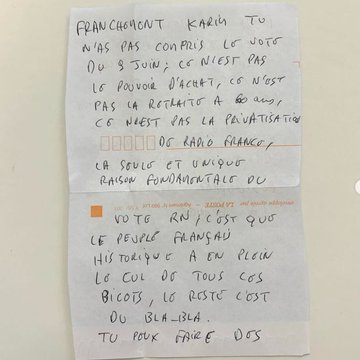 FRANCHEMENT KARIM TU
N'AS PAS COMPRIS LE VOTE
DU 9 JUIN; CE N'EST PAS
LE POUVOIR D'ACHAT, CE N'EST
PAS LA RETRAITE A 60 ANS,
CE N'EST PAS LA PRIVATISATION
DE RADIO FRANCE,
LA SEULE ET UNIQUE
RAISON FONDAMENTALE DU
LA POSTE
VOTE RN; C'EST QUE
LE PEUPLE FRANÇAIS
HISTORIQUE A EN PLEIN
LE CUL DE TOUS CES
BICOTS, LE RESTE C'EST
DU BLA-BLA.
TU PEUX FAIRE DES